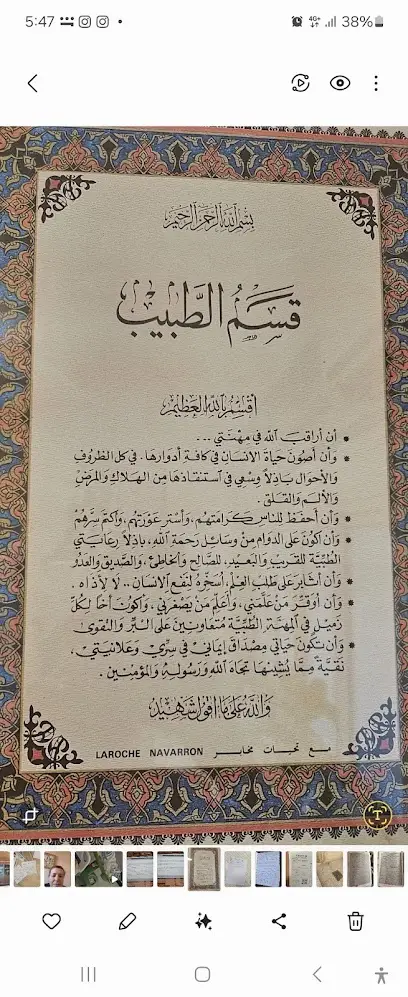 5:47
4G+
38%
بسم الله الرحمن الرحيم
قسم الطبيب
أقسم بالله العظيم
* أن أراقب الله في مهنتي ...
* وأن أصون حياة الانسان في كافة أدوارها. في كل الظروف
والأحوال باذلاً وسعي في استنقاذها من الهلاك والمرض
والألم والقلق.
* وأن أحفظ للناس كرامتهم، وأستر عورتهم، وأكتم سرهم
* وأن أكون على الدوام من وسائل رحمة الله، باذلاً رعايتي
الطبية للقريب والبعيد، للصالح والخاطئ، والصديق والعدو
* وأن أثابر على طلب العلم، أسخره لنفع الانسان .. لا لأذاه.
* وأن أوقر من علمني، وأعلم من يصغرني، وأكون أخاً لكل
زميل في المهنة الطبية متعاونين على البر والتقوى
* وأن تكون حياتي مصداق إيماني في سري وعلانيتي،
نقية مما يشينها تجاه الله ورسوله والمؤمنين.
والله على ما أقول شهيد
مع تحيات مخابر LAROCHE NAVARRON